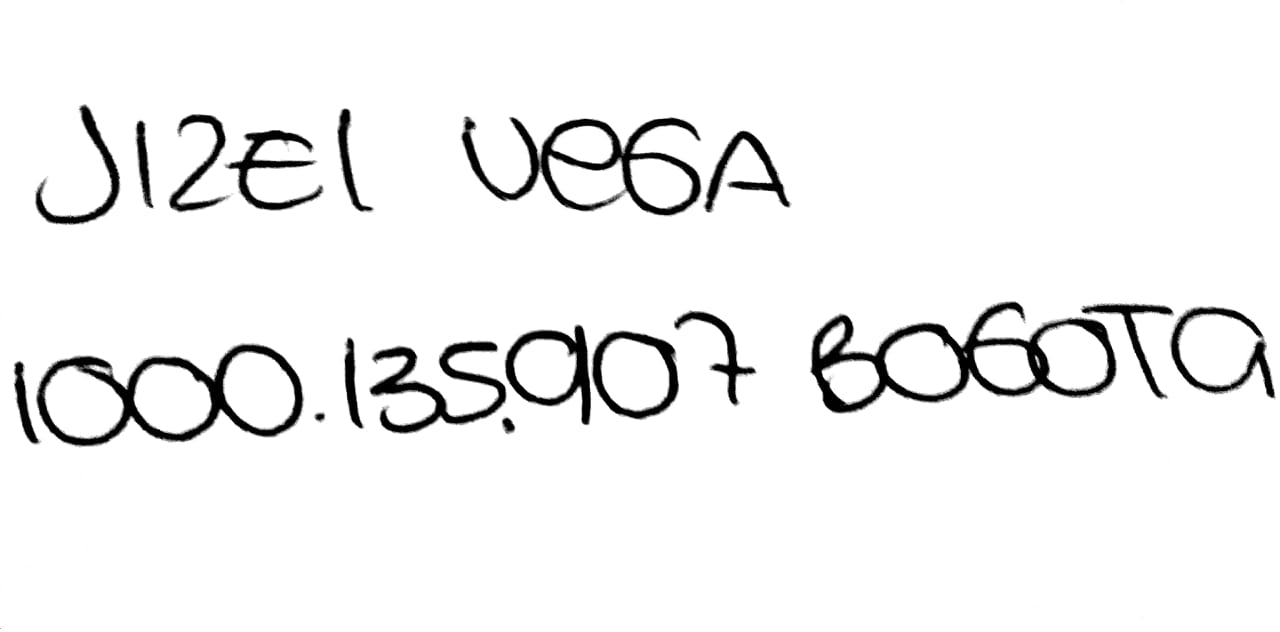 JIZEl VeGA
1000.135.907 BOGOTa